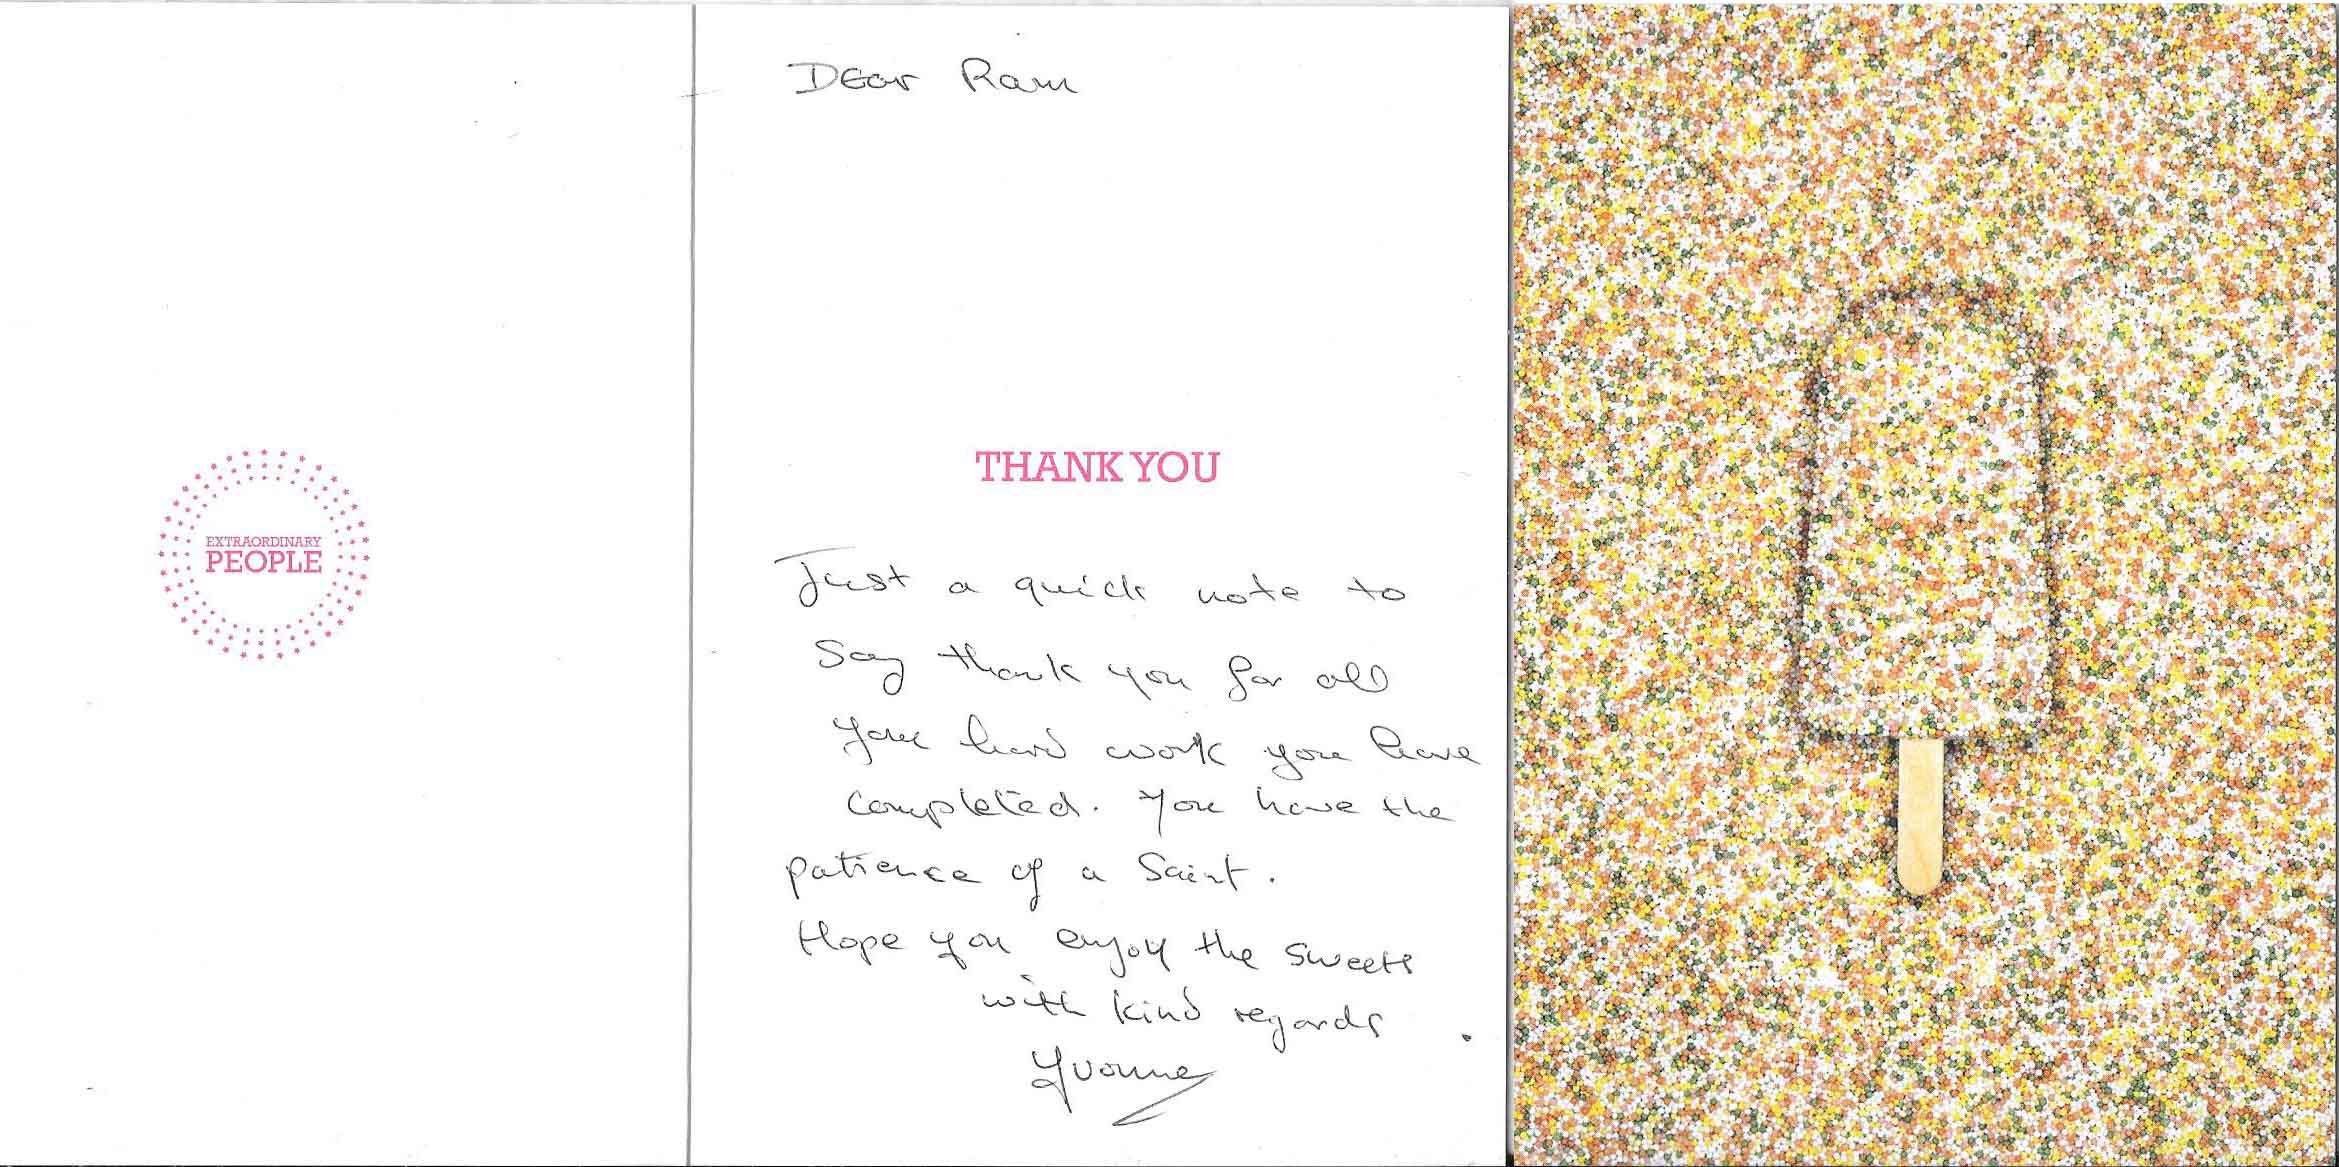 EXTRAORDINARY
PEOPLE
Dear Ram
THANK YOU
Just a quick note to
Say thank you for all
your hard work you have
completed. You have the
patience of a Saint.
Hope you enjoy the sweets
with kind regards
Yvonne